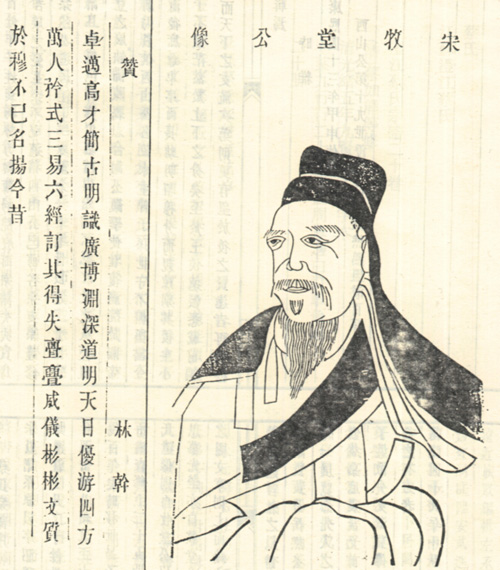 宋牧堂公像
贊 林幹
卓邁高才簡古明識廣博淵深道明天日優游四方
萬人矜式三易六經訂其得失亹亹威儀彬彬文質
於穆不已名揚今昔